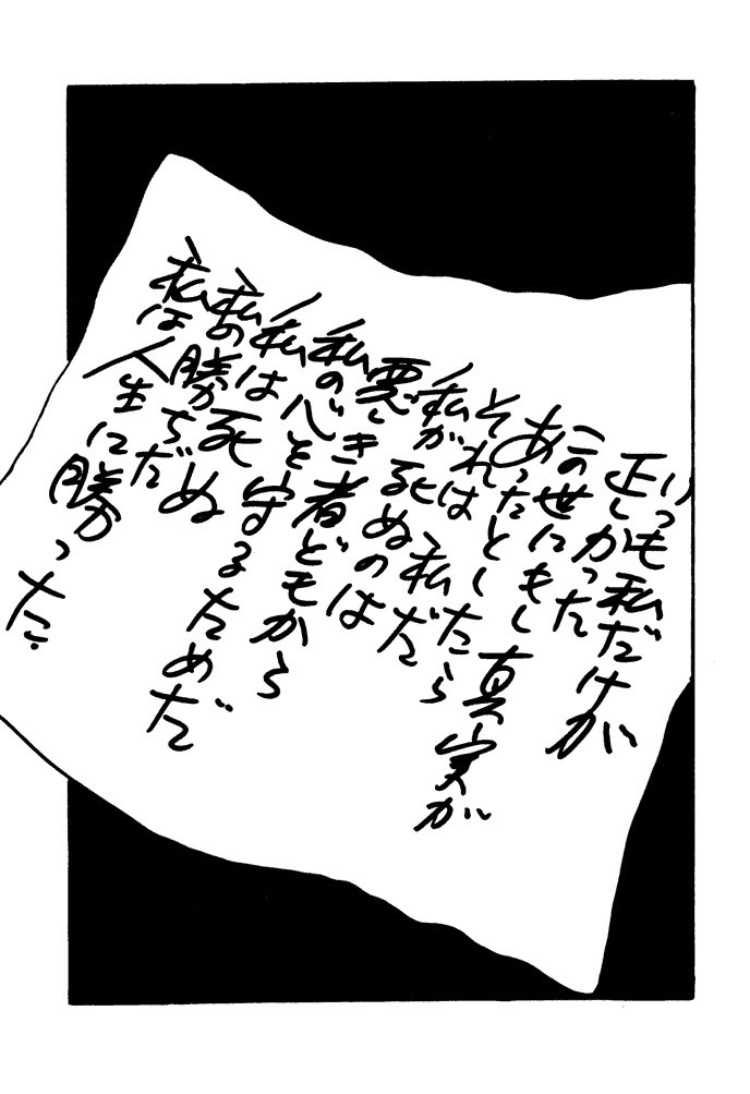 いつも私だけが
正しかった
この世にもし真実が
あったとしたら
それは私だ
私が死ぬのは
悪き者どもから
私の心を守るためだ
私は死ぬ
私の勝ちだ
私は人生に勝った.